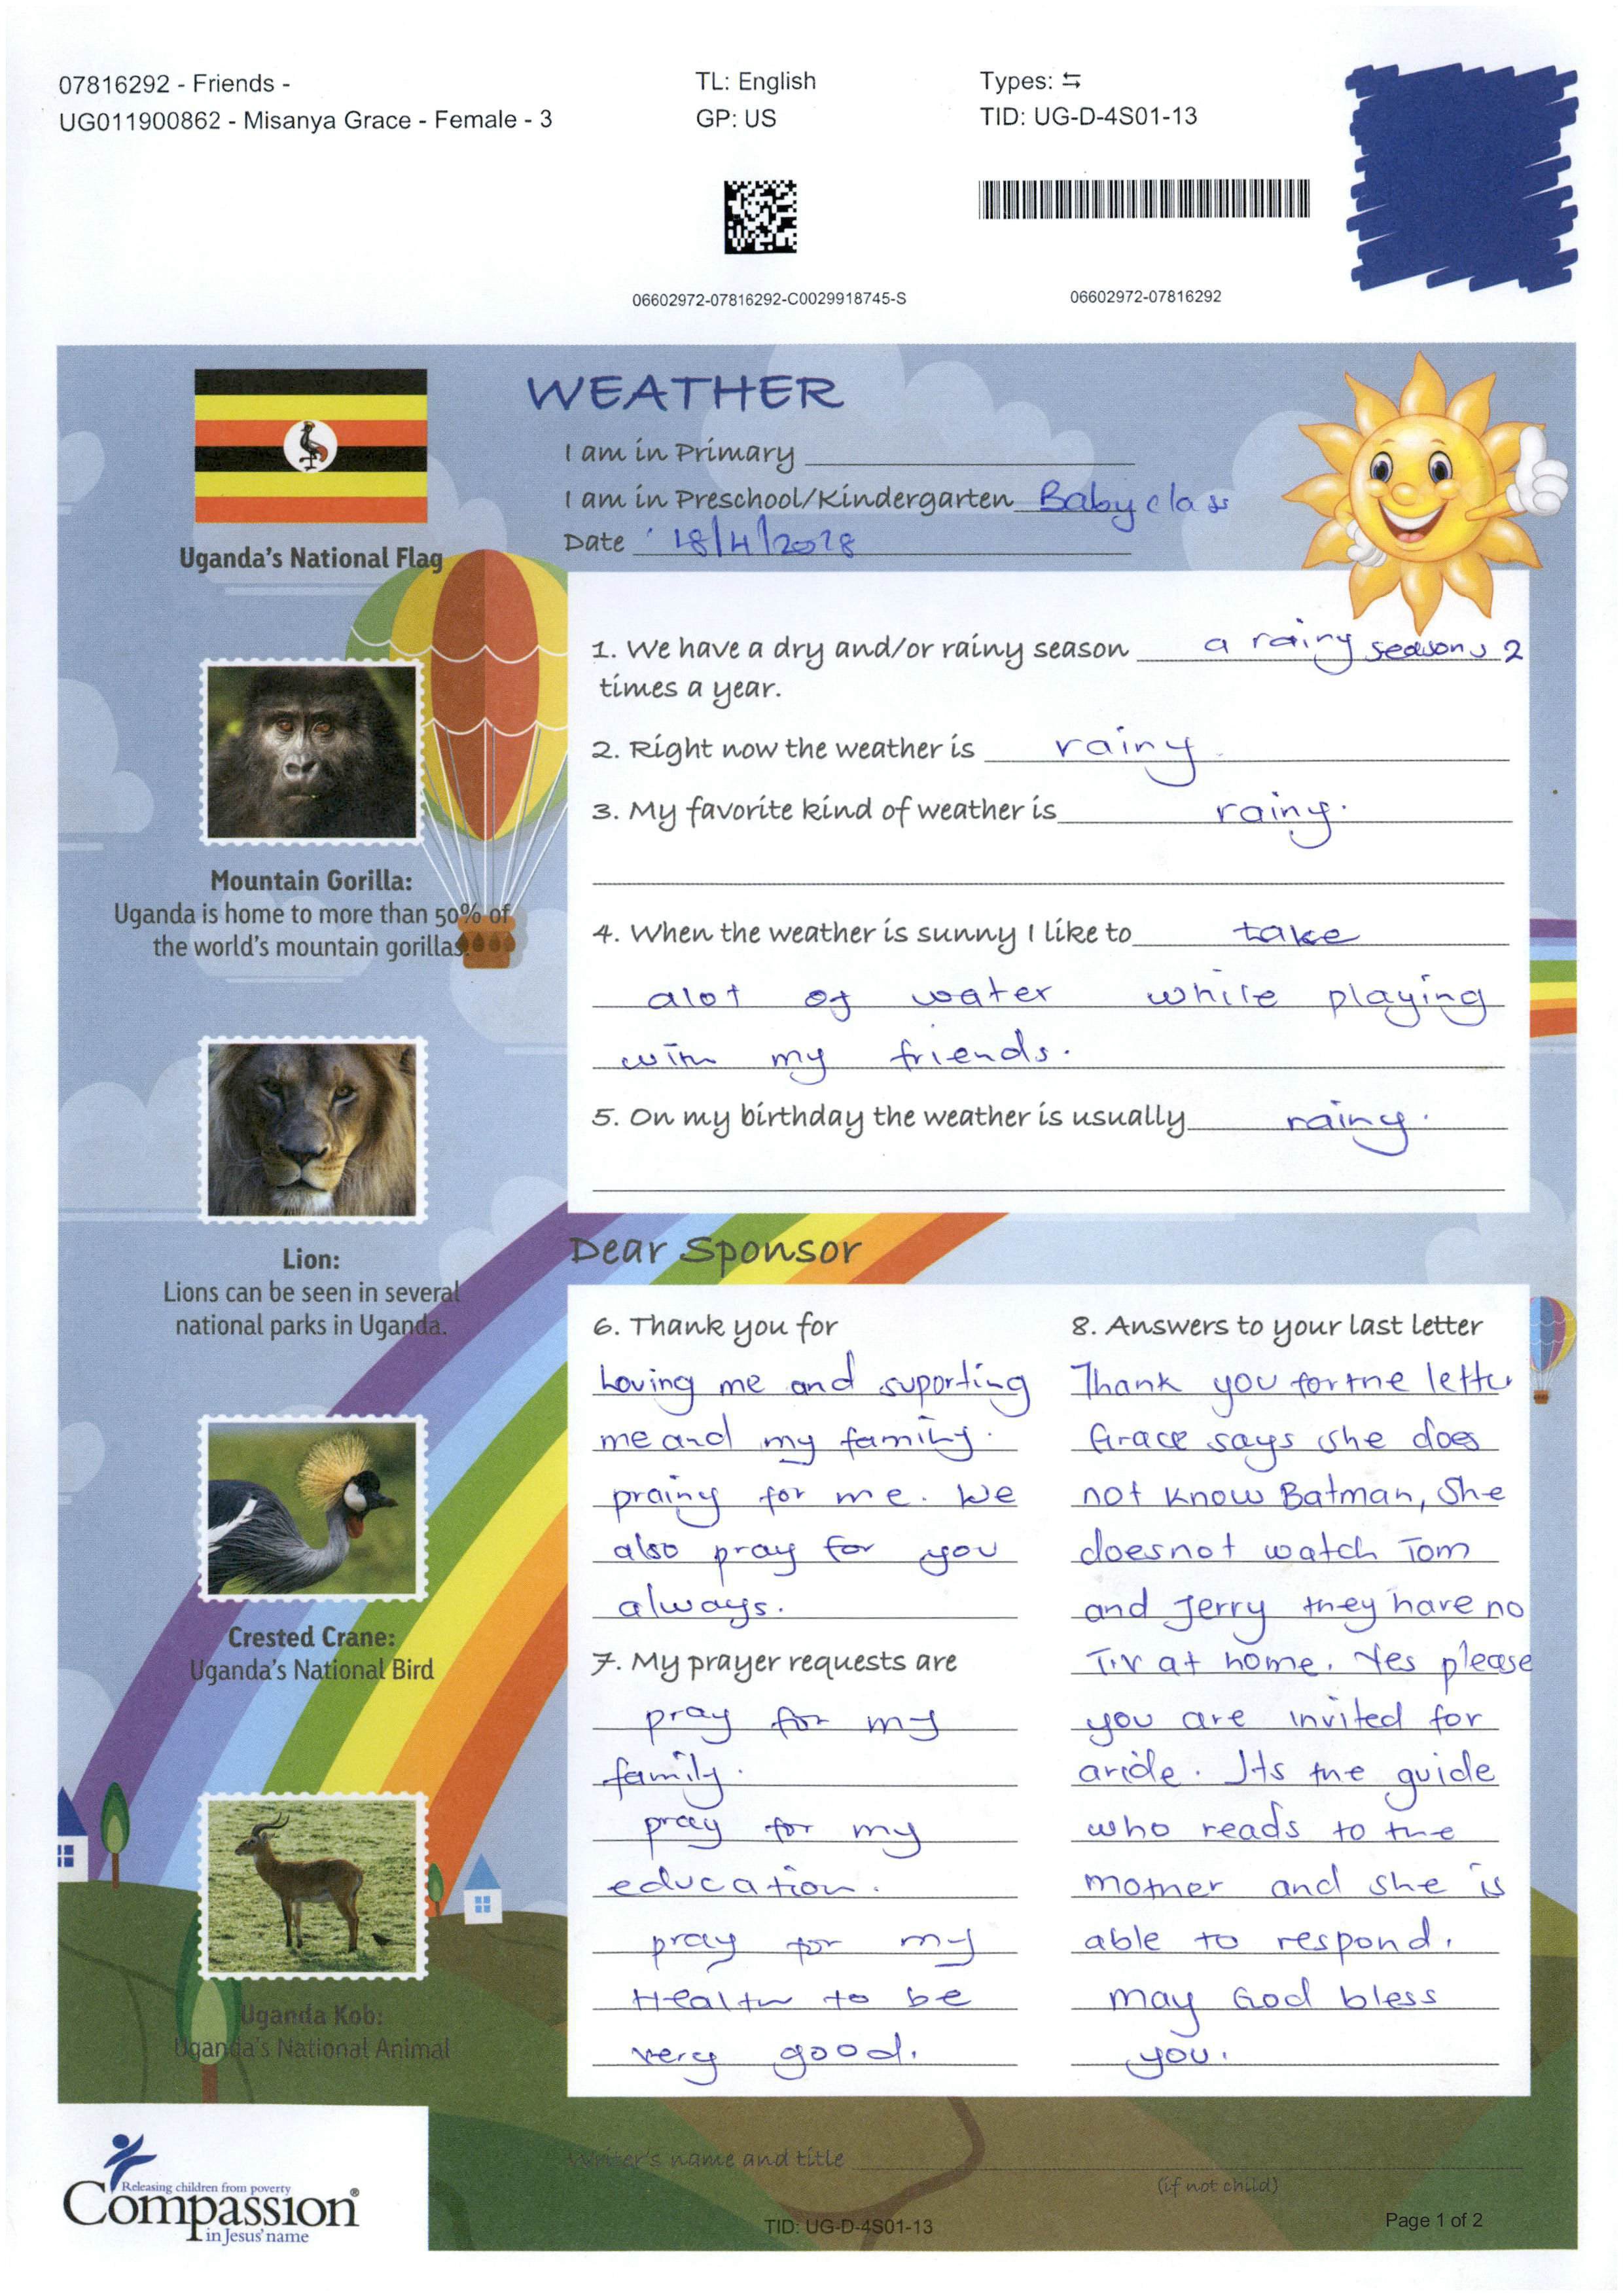 07816292 - Friends -
UG011900862 - Misanya Grace - Female - 3
TL: English
GP: US
Types: ⇆
TID: UG-D-4S01-13
06602972-07816292-C0029918745-S
06602972-07816292
WEATHER
I am in Primary
I am in Preschool/Kindergarten Baby class
Date 18/4/2018
Uganda's National Flag
Mountain Gorilla:
Uganda is home to more than 50% of
the world's mountain gorillas.
Lion:
Lions can be seen in several
national parks in Uganda.
Crested Crane:
Uganda's National Bird
Uganda Kob:
Uganda's National Animal
1. We have a dry and/or rainy season a rainy seasons 2
times a year.
2. Right now the weather is rainy
3. My favorite kind of weather is rainy.
4. When the weather is sunny I like to take
alot of water while playing
with my friends.
5. On my birthday the weather is usually rainy.
Dear Sponsor
6. Thank you for
Loving me and suporting
me and my family.
praing for me. We
also pray for you
always.
7. My prayer requests are
pray for my
family.
pray for my
education.
pray for my
Health to be
very good.
8. Answers to your last letter
Thank you for the letter
Grace says she does
not know Batman, She
doesnot watch Tom
and Jerry they have no
T.V at home. Yes please
you are invited for
aride. Its the guide
who reads to the
mother and she is
able to respond.
may God bless
you.
Writer's name and title
(if not child)
Releasing children from poverty
Compassion®
in Jesus' name
TID: UG-D-4S01-13
Page 1 of 2